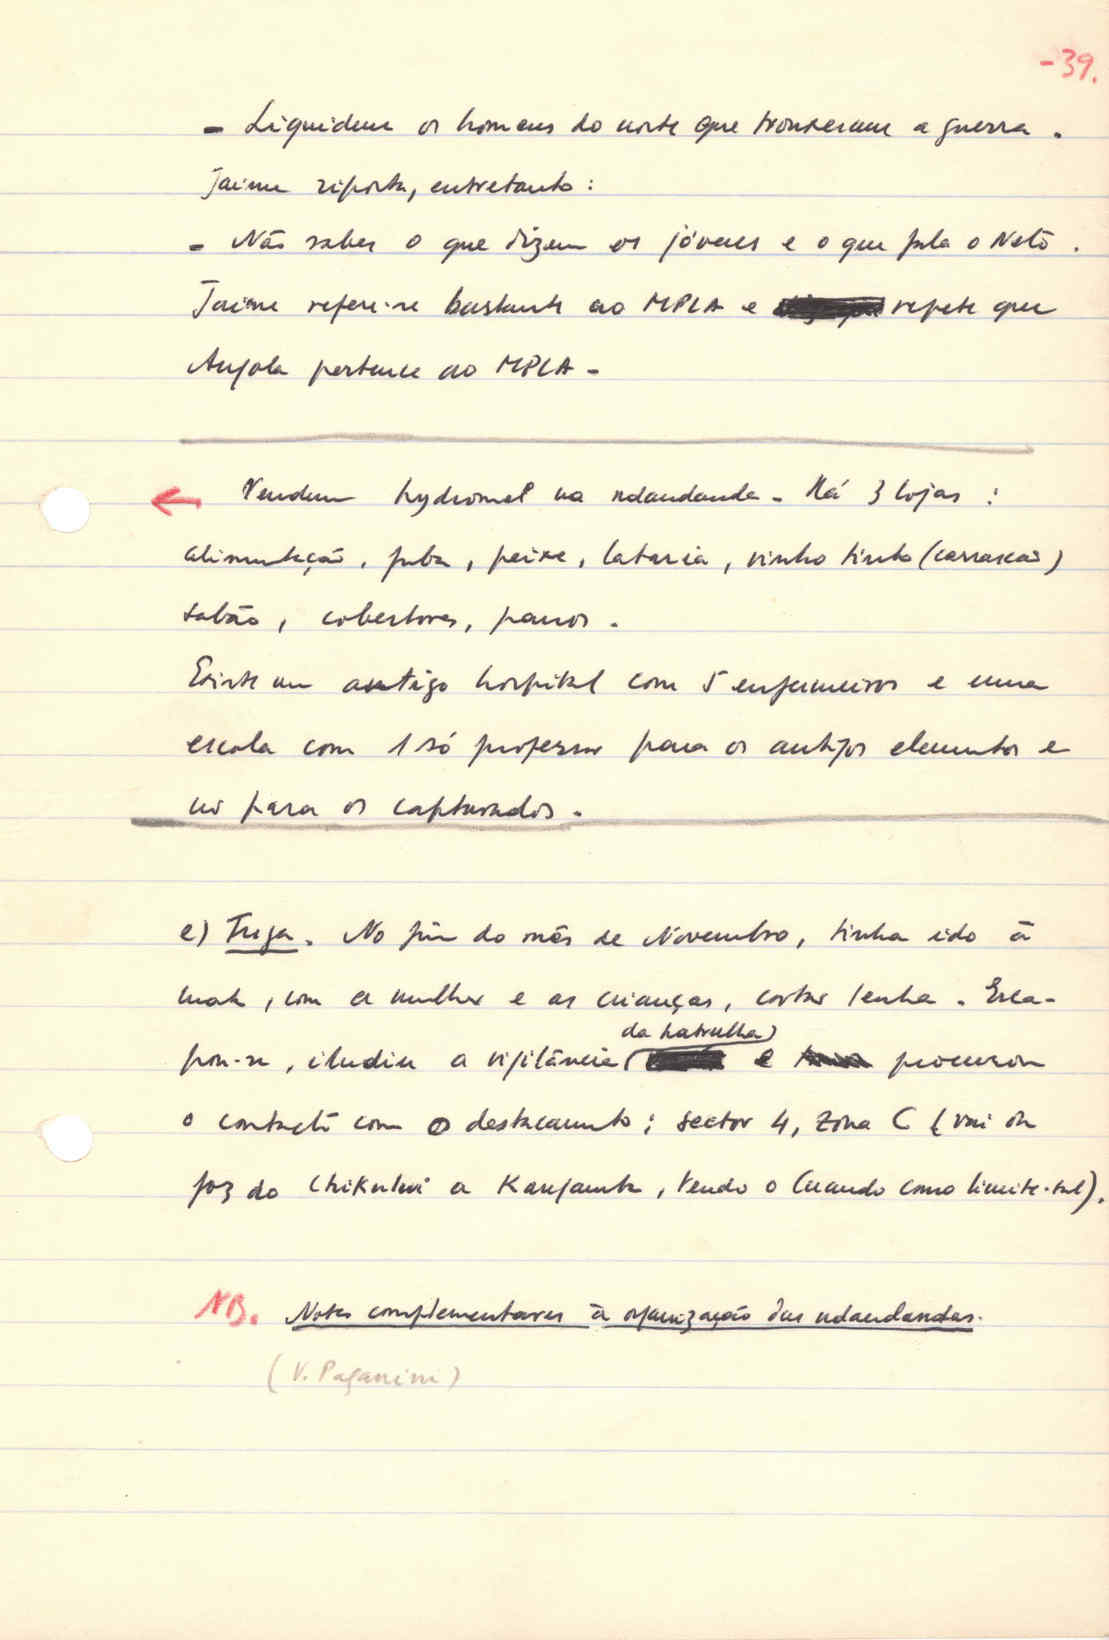 -39.
- Liquidem os homens do norte que trouxeram a guerra.
Jaime riposta, entretanto:
- Não sabes o que dizem os jóvens e o que fala o Neto.
Jaime refere-se bastante ao MPLA e repete que
Angola pertence ao MPLA -
← Vendem hydromel na ndandanda - Há 3 lojas :
alimentação, fuba, peixe, lataria, vinho tinto (carrascão)
sabão, cobertores, panos.
Existe um antigo hospital com 5 enfermeiros e uma
escola com 1 só professor para os antigos elementos e
não para os capturados.
e) Fuga. No fim do mês de Novembro, tinha ido à
mata, com a mulher e as crianças, cortar lenha. Esca-
pou-se, iludiu a vigilância (da patrulha) e procurou
o contacto com o destacamento; sector 4, zona C (vai da
foz do Chikului a Kangamba, tendo o Cuando como limite-sul).
NB. Notas complementares à organização das ndandandas.
(V. Paganini)